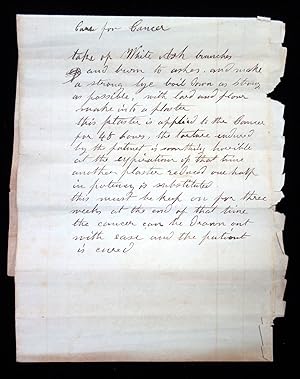 Cure for Cancer
take of White Ash branches
and burn to ashes, and make
a strong lye boil down as strong
as possible, with lard and flour
make into a plaster
this plaster is applied to the Cancer
for 48 hours, the torture endured
by the patient is something horrible
at the expiration of that time
another plaster reduced one half
in potency is substituted
this must be keep on for three
weeks at the end of that time
the cancer can be drawn out
with ease and the patient
is cured